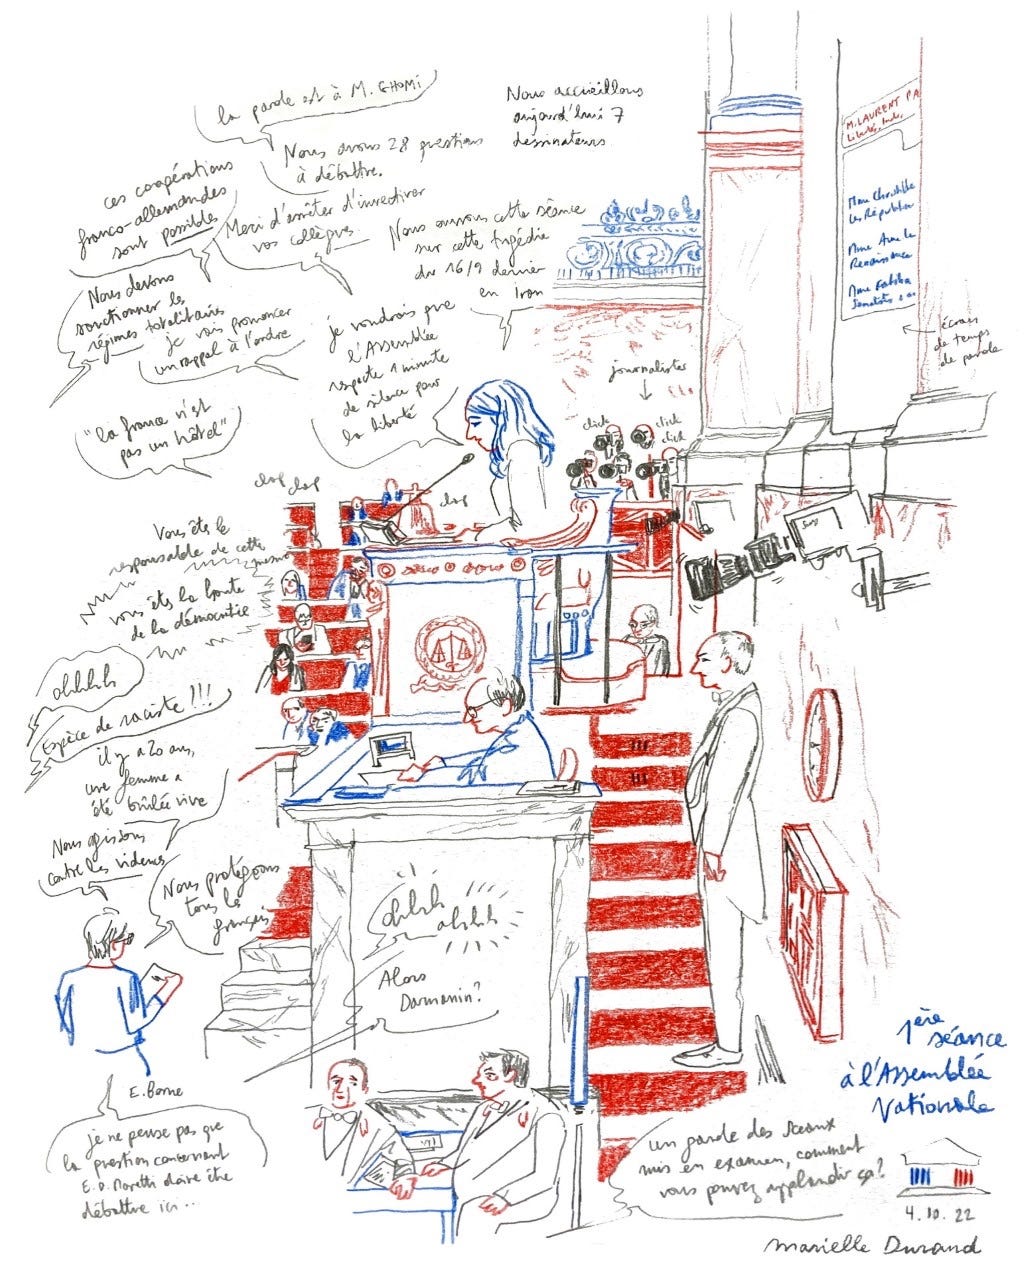 la parole est à M. GHOMI
Nous accueillons
aujourd'hui 7
dessinateurs.
Nous avons 28 questions
à débattre.
ces coopérations
franco-allemandes
sont possibles
Merci d'arrêter d'invectiver
vos collègues
Nous ouvrons cette séance
sur cette tragédie
du 16/9 dernier
en Iran
Nous devons
sanctionner les
régimes totalitaires
je vais prononcer
un rappel à l'ordre
je voudrais que
l'Assemblée
respecte 1 minute
de silence pour
la liberté
"la france n'est
pas un hôtel"
M. LAURENT PA
Mme Christelle
Les Républica
Mme Anne Le
Renaissance
Mme
écran
de temps
de parole
journalistes
click
click
click
clap clap
clap
Sony
Vous êts le
responsable de cette
vous êts la honte
de la démocratie
ohhhh
Espèce de raciste !!!
il y a 20 ans,
une femme a
été brûlée vive
Nous agissons
contre les violences
Nous protégeons
tous les
français
ohhh
ohhhh
Alors
Darmanin?
E. Borne
je ne pense pas que
la question concernant
E. D. Moretti doive être
débattue ici...
un garde des sceaux
mis en examen, comment
vous pouvez applaudir ça?
1ère
séance
à l'Assemblée
Nationale
4.10.22
Marielle Durand